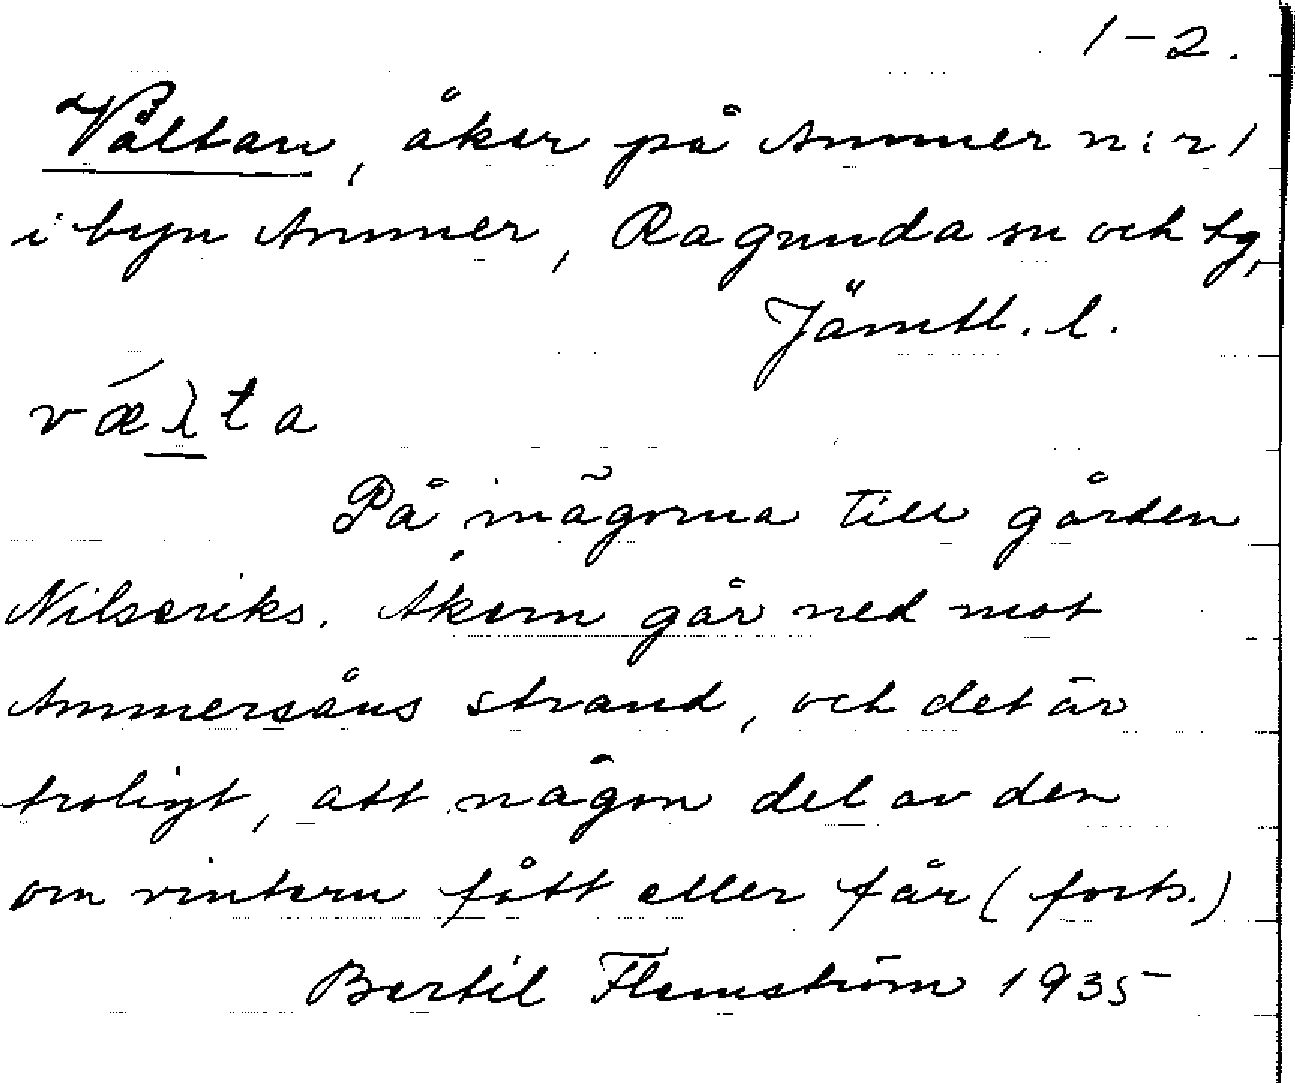 1-2.
Vältan, åker på Ammer n:r 1
i byn Ammer, Ragunda sn och tg,
Jämtl. l.
væ̀lta
På inägorna till gården
Nilseriks. Åkern går ned mot
Ammersåns strand, och det är
troligt, att någon del av den
om vintern fått eller får (forts.)
Bertil Flemström 1935